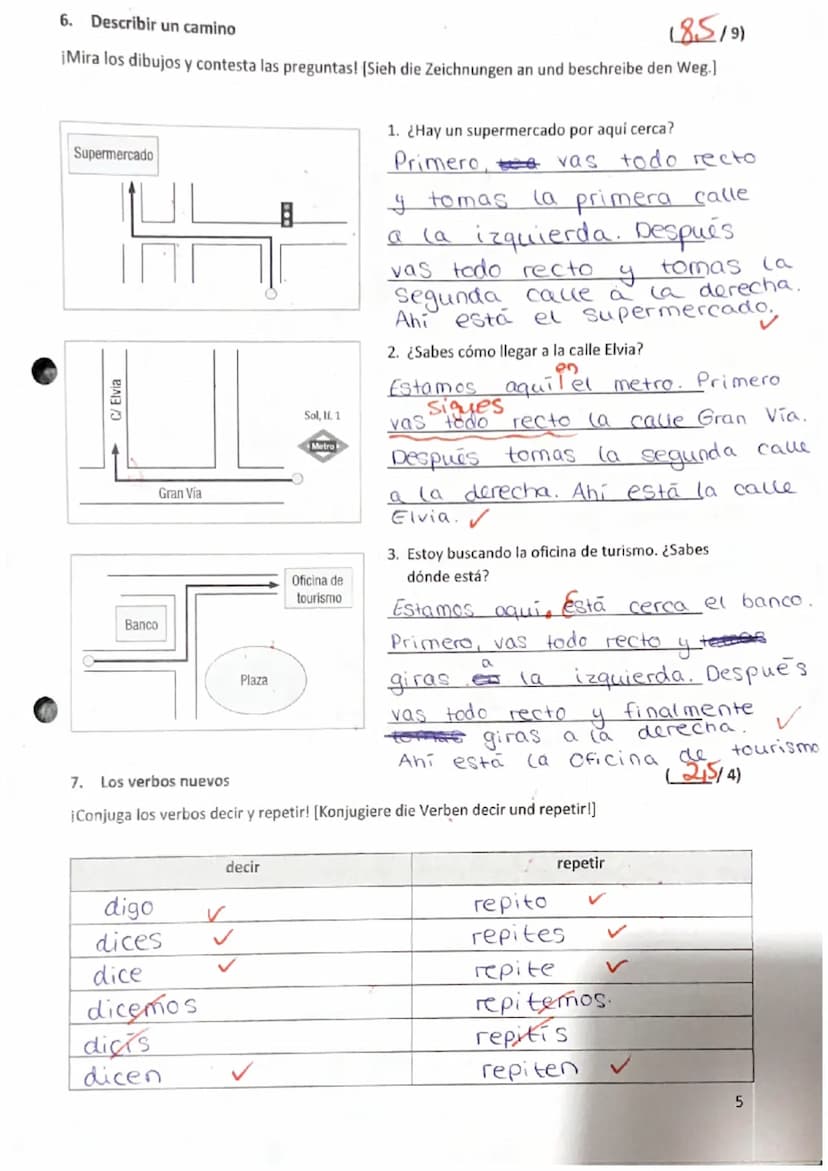 6. Describir un camino
(8,5/9)
¡Mira los dibujos y contesta las preguntas! [Sieh die Zeichnungen an und beschreibe den Weg.]
Supermercado
1. ¿Hay un supermercado por aquí cerca?
Primero, vas todo recto
y tomas la primera calle
a la izquierda. Después
vas todo recto y tomas la
segunda calle a la derecha.
Ahí está el supermercado.
C/ Elvia
Sol, lf. 1
Metro
Gran Vía
2. ¿Sabes cómo llegar a la calle Elvia?
en
Estamos aquí el metro. Primero
sigues
vas todo recto la calle Gran Vía.
Después tomas la segunda calle
a la derecha. Ahí está la calle
Elvia.
Oficina de
tourismo
Banco
Plaza
3. Estoy buscando la oficina de turismo. ¿Sabes
dónde está?
Estamos aquí. Está cerca el banco.
Primero, vas todo recto y tomas
giras a la izquierda. Después
vas todo recto y finalmente
tomas giras a la derecha.
Ahí está la oficina de tourismo
7. Los verbos nuevos
(2,5/4)
¡Conjuga los verbos decir y repetir! [Konjugiere die Verben decir und repetir!]
decir repetir
digo repito
dices repites
dice repite
dicemos repitemos.
dicís repitís
dicen repiten
5